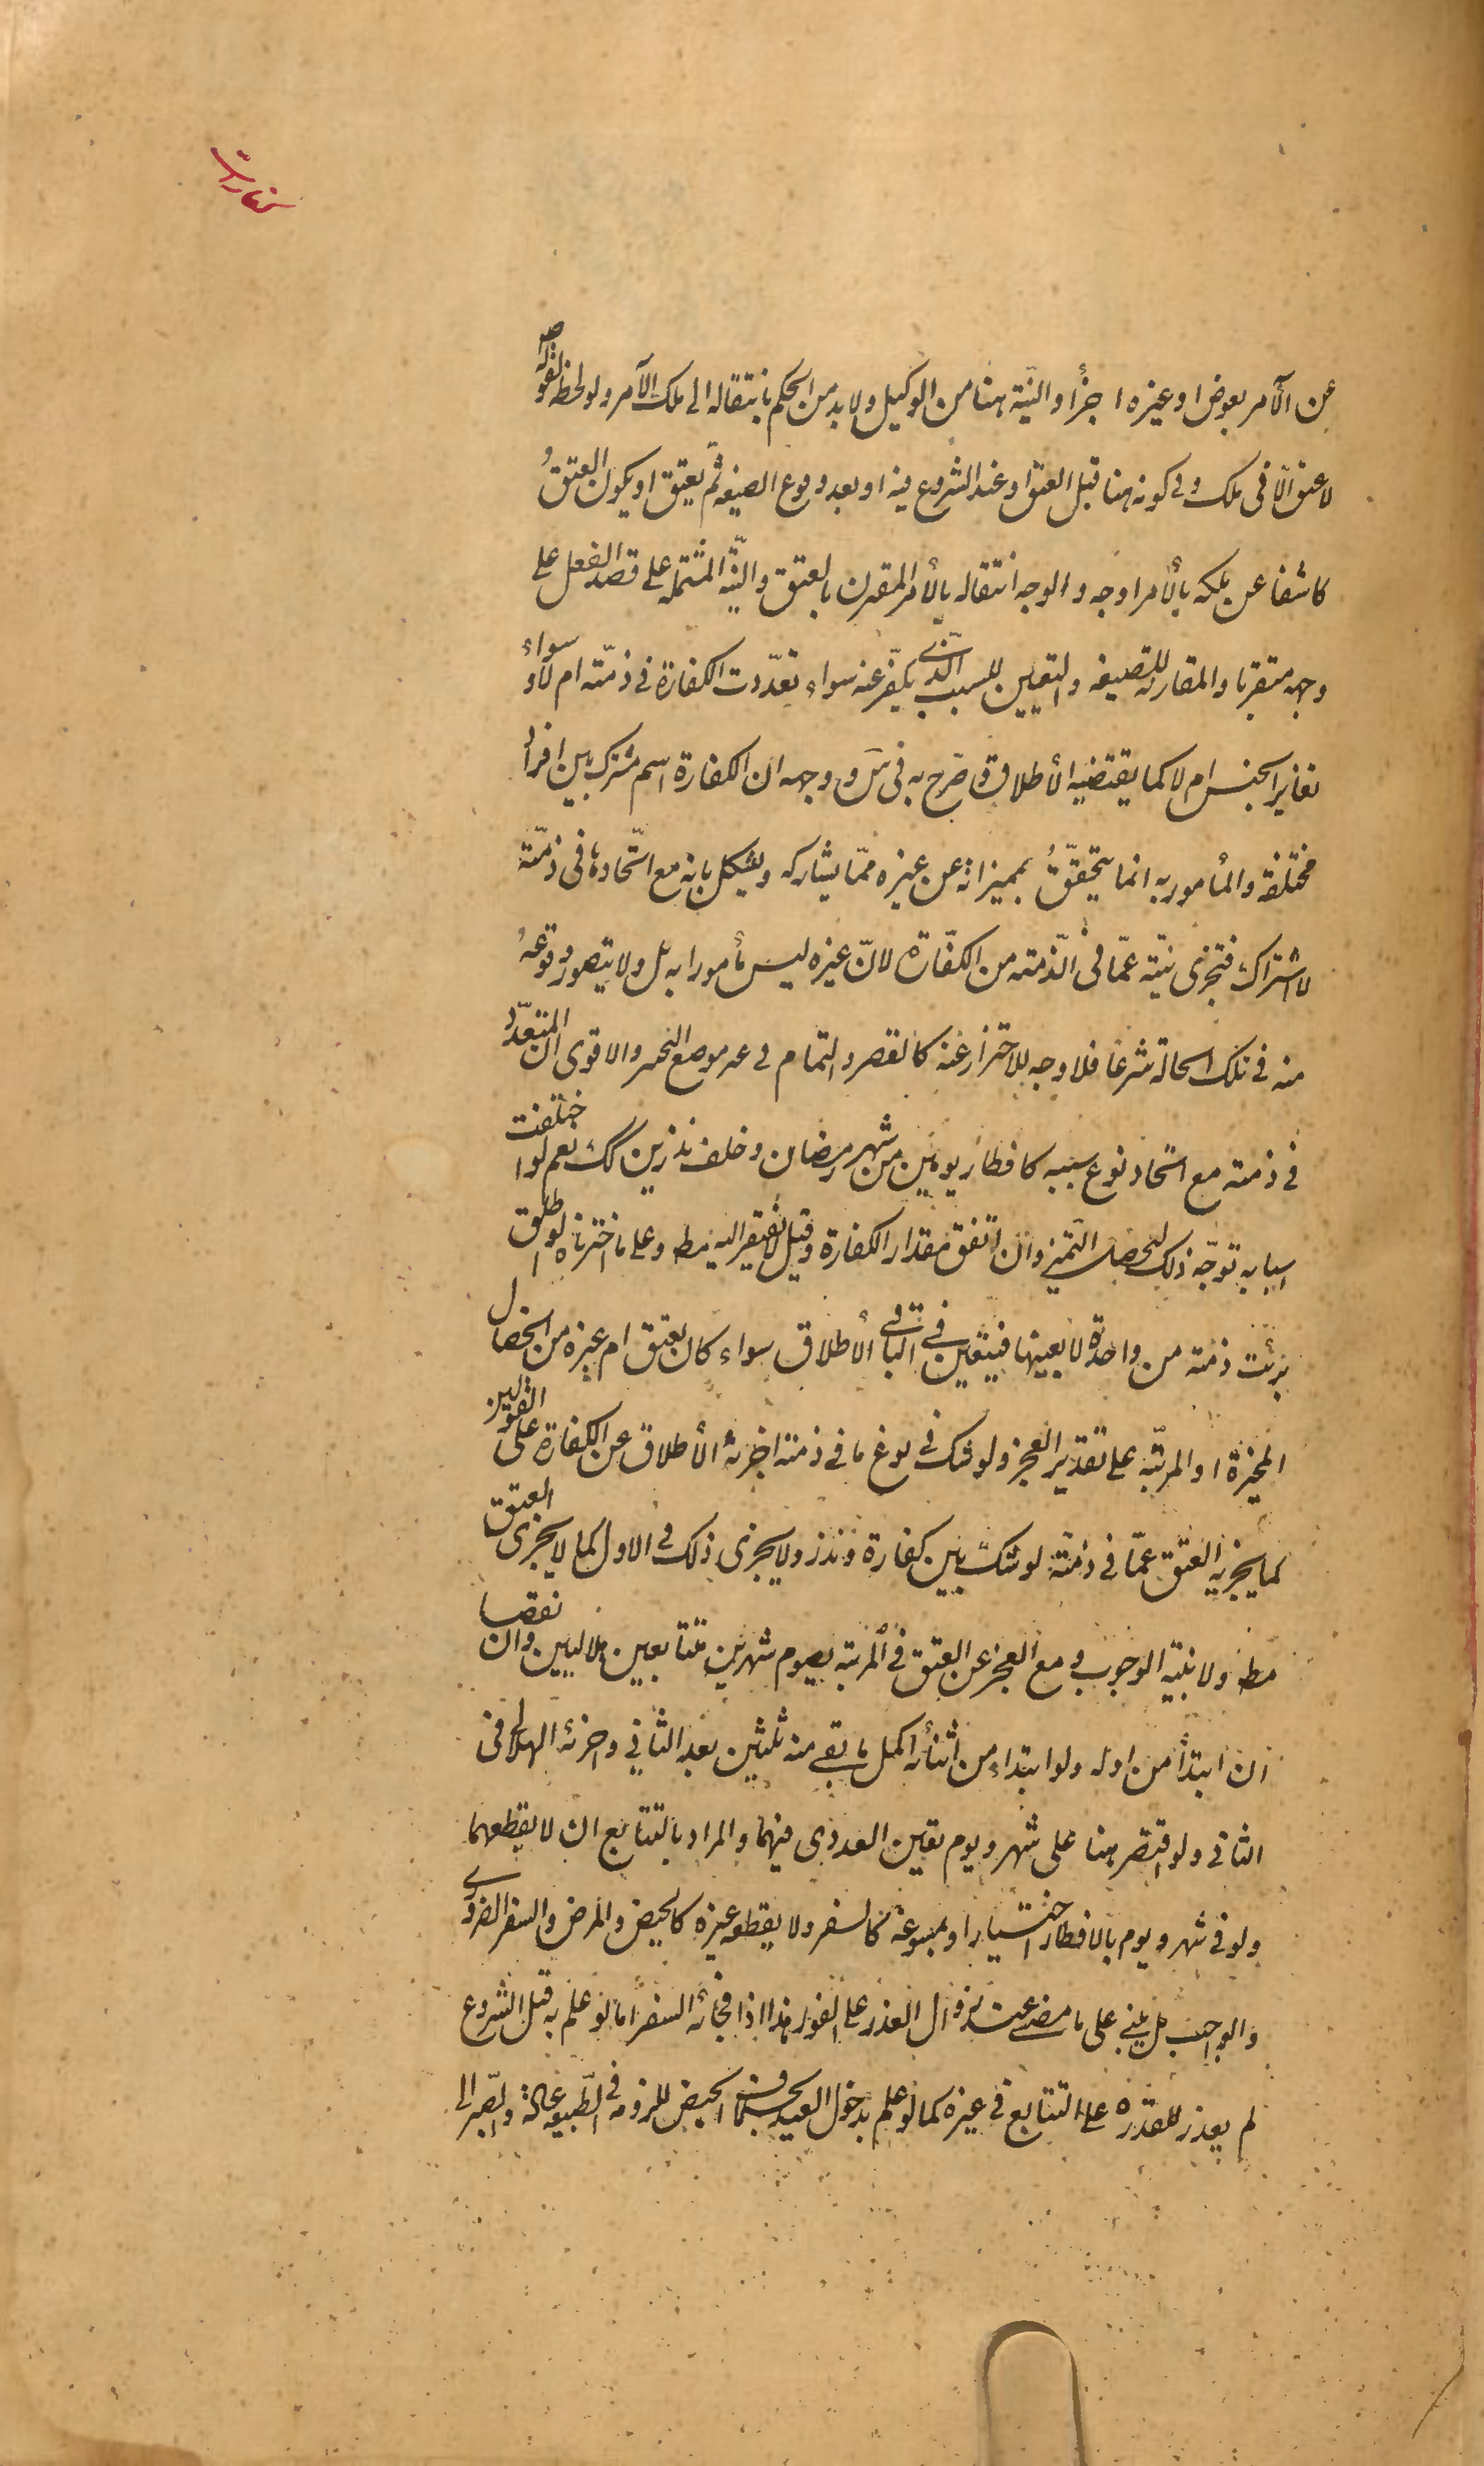 كفارات
عن الآمر بعوض او غيره اجزأ والنيّة هنا من الوكيل ولا بد من الحكم بانتقاله الى ملك الآمر ولو لحظ لقوله ص
لا عتق الّا فى ملك وفى كونه هنا قبل العتق او عند الشروع فيه او بعد وقوع الصيغه ثم يعتق او يكون العتقُ
كاشفا عن ملكه بالأمر اوجه والوجه انتقاله بالأمر المقترن بالعتق والنيّة المشتمله على قصد الفعل على
وجهه متقربا والمقارنه للصيغه والتعيين للسبب الّذى يكفّر عنه سواء تعدّدت الكفارة فى ذمّته ام لا وسواء
تغاير الجنس ام لا كما يقتضيه الأطلاق و صرّح به فى س و وجهه ان الكفارة اسم مشترك بين افراد
مختلفة والمأمور به انما يتحققُ بمميزاته عن غيره ممّا يشاركه ويشكل بانه مع اتّحادها فى ذمّته
لا اشتراك فتجزى نيّته عمّا فى الّذمته من الكفّارة لانّ غيره ليس مأمورا به بل ولا يتصور وقوعهُ
منه فى تلك الحالة شرعا فلا وجه للاحتراز عنه كالقصر والتمام فى غير موضع التخير والاقوى ان المتعدّد
فى ذمته مع اتّحاد نوع سببه كافطار يومين من شهر رمضان وخلف نذرين كك نعم لو اختلفت
اسبابه توجّه ذلك ليحصل التّميز وان اتفق مقدار الكفارة وقيل لا يفتقر اليه مط وعلى ما اخترناه لو اطلق
برئت ذمته من واحدة لا بعينها فيتعين فى الباقى الأطلاق سواء كان بعتق ام غيره من الخصال
المخيّرة او المرتّبه على تقدير العجز ولو شك فى نوع ما فى ذمته اجزأه الأطلاق عن الكفارة على القولين
كما يجزيه العتق عمّا فى ذمته لو شك بين كفارة ونذر ولا يجزى ذلك فى الاول كما لا يجزى العتق
مط ولا بنيّة الوجوب و مع العجز عن العتق فى المرتبه يصوم شهرين متتابعين هلاليين وان نقصا
ان ابتدأ من اوله ولو ابتداء من اثنائه اكمل ما بقى منه ثلثين بعد الثانى واجزئه الهلالى فى
الثانى ولو اقتصر هنا على شهر ويوم تعين العددى فيهما والمراد بالتتابع ان لا يقطعهما
ولو فى شهر ويوم بالافطار اختيارا ولو بمسوغه كالسفر ولا يقطعه غيره كالحيض والمرض والسفر الضرورى
والواجب بل يبنى على ما مضى عند زوال العذر على الفور هذا اذا فجائه السفر اما لو علم به قبل الشروع
لم يعذر للقدرة على التتابع فى غيره كما لو علم بدخول العيد بخلاف الحيض للزومه فى الطّبيعه عادة والصّبر الى